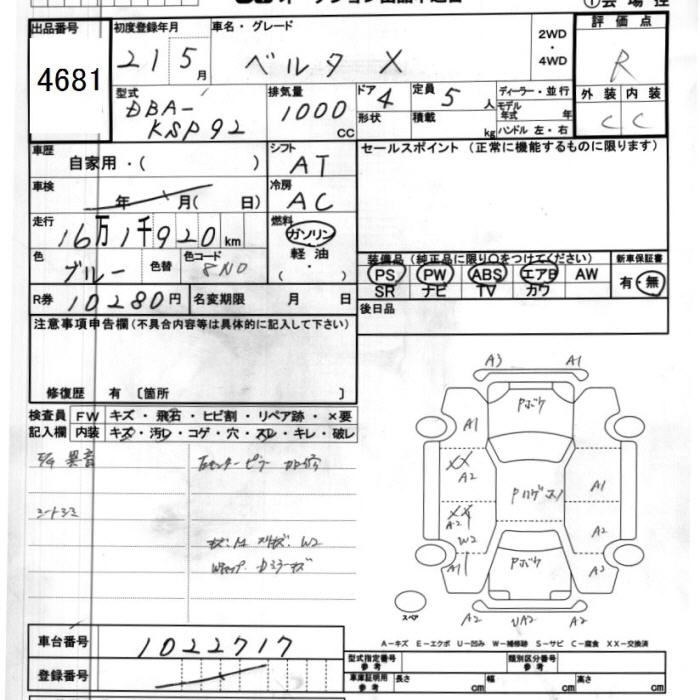 出品番号 初度登録年月 車名・グレード 2WD・4WD 評価点
4681 21 5月 ベルタ X R
型式 排気量 ドア 定員 ディーラー・並行 外装 内装
DBA-KSP92 1000 CC 4 5人 モデル年式 年 C C
形状 積載 kg ハンドル 左・右
車歴 シフト セールスポイント (正常に機能するものに限ります)
自家用・( ) AT
車検 冷房
年 月( 日) AC
走行 燃料
16万1千920km ガソリン
色 色替 色コード 軽油 装備品 (純正品に限り○をつけてください) 新車保証書
ブルー 8N0 ・( ) PS PW ABS エアB AW 有・無
SR ナビ TV カワ
R券 10280円 名変期限 月 日 後日品
注意事項申告欄(不具合内容等は具体的に記入して下さい)
修復歴 有 〔箇所 〕
検査員 FW キズ・飛石・ヒビ割・リペア跡・×要
記入欄 内装 キズ・汚レ・コゲ・穴・スレ・キレ・破レ
異音
シートシミ
A3 A1
Pボケ
A1
XX A2
A1
XX A2 W2
A2
A1
Pボケ
A2
スペア
A2 UA2 A2
A-キズ E-エクボ U-凹み W-補修跡 S-サビ C-腐食 XX-交換済
車台番号 1022717
登録番号
型式指定番号参考 類別区分番号参考
車庫証明用参考 長さ cm 幅 cm 高さ cm